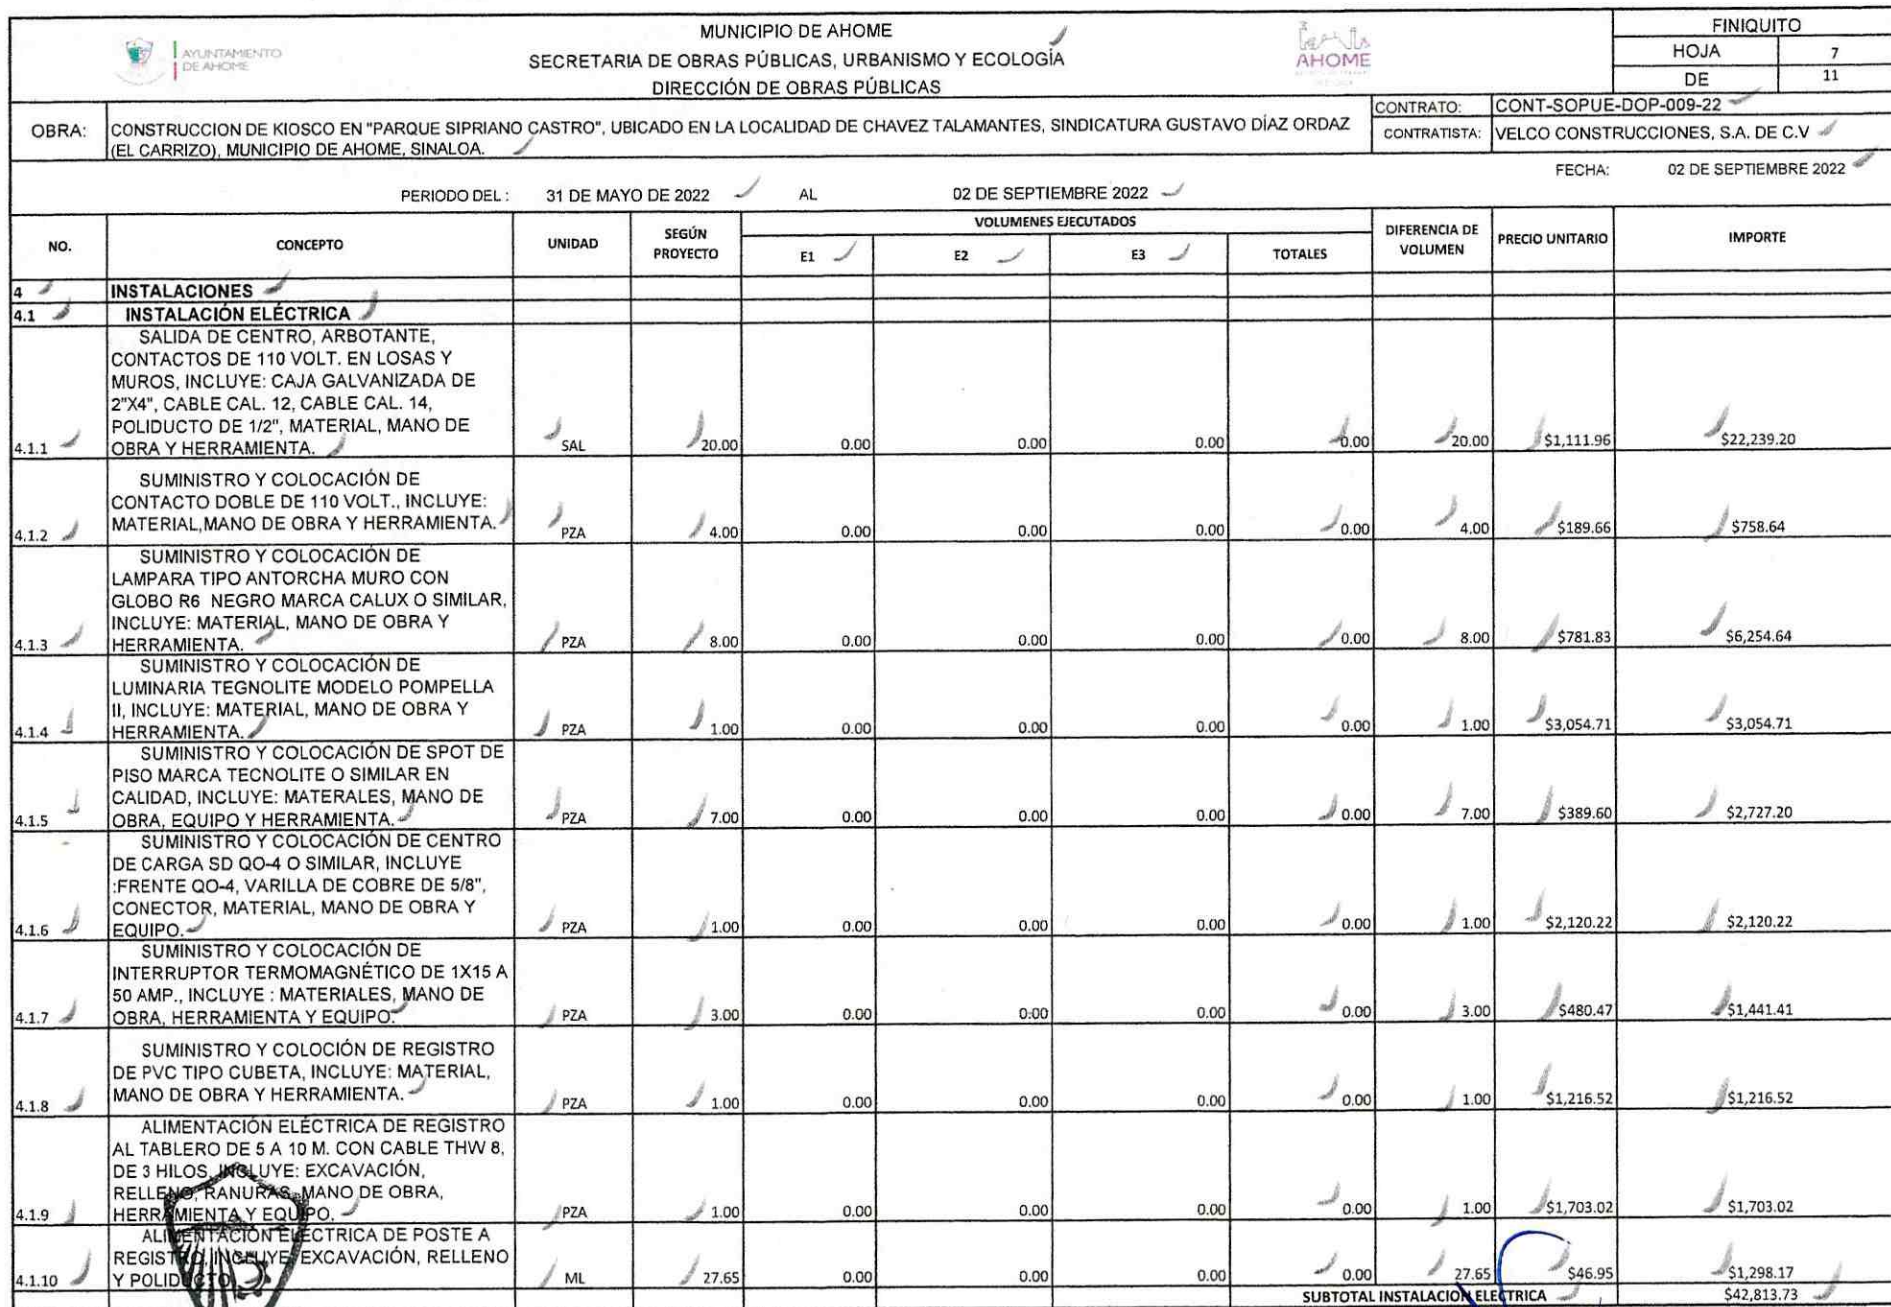 AYUNTAMIENTO
DE AHOME
MUNICIPIO DE AHOME
SECRETARIA DE OBRAS PÚBLICAS, URBANISMO Y ECOLOGÍA
DIRECCIÓN DE OBRAS PÚBLICAS
AHOME
FINIQUITO
HOJA 7
DE 11
OBRA: CONSTRUCCION DE KIOSCO EN "PARQUE SIPRIANO CASTRO", UBICADO EN LA LOCALIDAD DE CHAVEZ TALAMANTES, SINDICATURA GUSTAVO DÍAZ ORDAZ
(EL CARRIZO), MUNICIPIO DE AHOME, SINALOA.
CONTRATO: CONT-SOPUE-DOP-009-22
CONTRATISTA: VELCO CONSTRUCCIONES, S.A. DE C.V
FECHA: 02 DE SEPTIEMBRE 2022
PERIODO DEL : 31 DE MAYO DE 2022 AL 02 DE SEPTIEMBRE 2022
NO. CONCEPTO UNIDAD SEGÚN PROYECTO VOLUMENES EJECUTADOS DIFERENCIA DE VOLUMEN PRECIO UNITARIO IMPORTE
E1 E2 E3 TOTALES
4 INSTALACIONES
4.1 INSTALACIÓN ELÉCTRICA
SALIDA DE CENTRO, ARBOTANTE,
CONTACTOS DE 110 VOLT. EN LOSAS Y
MUROS, INCLUYE: CAJA GALVANIZADA DE
2"X4", CABLE CAL. 12, CABLE CAL. 14,
POLIDUCTO DE 1/2", MATERIAL, MANO DE
4.1.1 OBRA Y HERRAMIENTA. SAL 20.00 0.00 0.00 0.00 0.00 20.00 $1,111.96 $22,239.20
SUMINISTRO Y COLOCACIÓN DE
CONTACTO DOBLE DE 110 VOLT., INCLUYE:
MATERIAL,MANO DE OBRA Y HERRAMIENTA.
4.1.2 PZA 4.00 0.00 0.00 0.00 0.00 4.00 $189.66 $758.64
SUMINISTRO Y COLOCACIÓN DE
LAMPARA TIPO ANTORCHA MURO CON
GLOBO R6 NEGRO MARCA CALUX O SIMILAR,
INCLUYE: MATERIAL, MANO DE OBRA Y
4.1.3 HERRAMIENTA. PZA 8.00 0.00 0.00 0.00 0.00 8.00 $781.83 $6,254.64
SUMINISTRO Y COLOCACIÓN DE
LUMINARIA TEGNOLITE MODELO POMPELLA
II, INCLUYE: MATERIAL, MANO DE OBRA Y
4.1.4 HERRAMIENTA. PZA 1.00 0.00 0.00 0.00 0.00 1.00 $3,054.71 $3,054.71
SUMINISTRO Y COLOCACIÓN DE SPOT DE
PISO MARCA TECNOLITE O SIMILAR EN
CALIDAD, INCLUYE: MATERALES, MANO DE
4.1.5 OBRA, EQUIPO Y HERRAMIENTA. PZA 7.00 0.00 0.00 0.00 0.00 7.00 $389.60 $2,727.20
SUMINISTRO Y COLOCACIÓN DE CENTRO
DE CARGA SD QO-4 O SIMILAR, INCLUYE
:FRENTE QO-4, VARILLA DE COBRE DE 5/8",
CONECTOR, MATERIAL, MANO DE OBRA Y
4.1.6 EQUIPO. PZA 1.00 0.00 0.00 0.00 0.00 1.00 $2,120.22 $2,120.22
SUMINISTRO Y COLOCACIÓN DE
INTERRUPTOR TERMOMAGNÉTICO DE 1X15 A
50 AMP., INCLUYE : MATERIALES, MANO DE
4.1.7 OBRA, HERRAMIENTA Y EQUIPO. PZA 3.00 0.00 0:00 0.00 0.00 3.00 $480.47 $1,441.41
SUMINISTRO Y COLOCIÓN DE REGISTRO
DE PVC TIPO CUBETA, INCLUYE: MATERIAL,
MANO DE OBRA Y HERRAMIENTA.
4.1.8 PZA 1.00 0.00 0.00 0.00 0.00 1.00 $1,216.52 $1,216.52
ALIMENTACIÓN ELÉCTRICA DE REGISTRO
AL TABLERO DE 5 A 10 M. CON CABLE THW 8,
DE 3 HILOS, INCLUYE: EXCAVACIÓN,
RELLENO, RANURAS, MANO DE OBRA,
4.1.9 HERRAMIENTA Y EQUIPO. PZA 1.00 0.00 0.00 0.00 0.00 1.00 $1,703.02 $1,703.02
ALIMENTACIÓN ELÉCTRICA DE POSTE A
REGISTRO, INCLUYE: EXCAVACIÓN, RELLENO
4.1.10 Y POLIDUCTO. ML 27.65 0.00 0.00 0.00 0.00 27.65 $46.95 $1,298.17
SUBTOTAL INSTALACION ELECTRICA $42,813.73